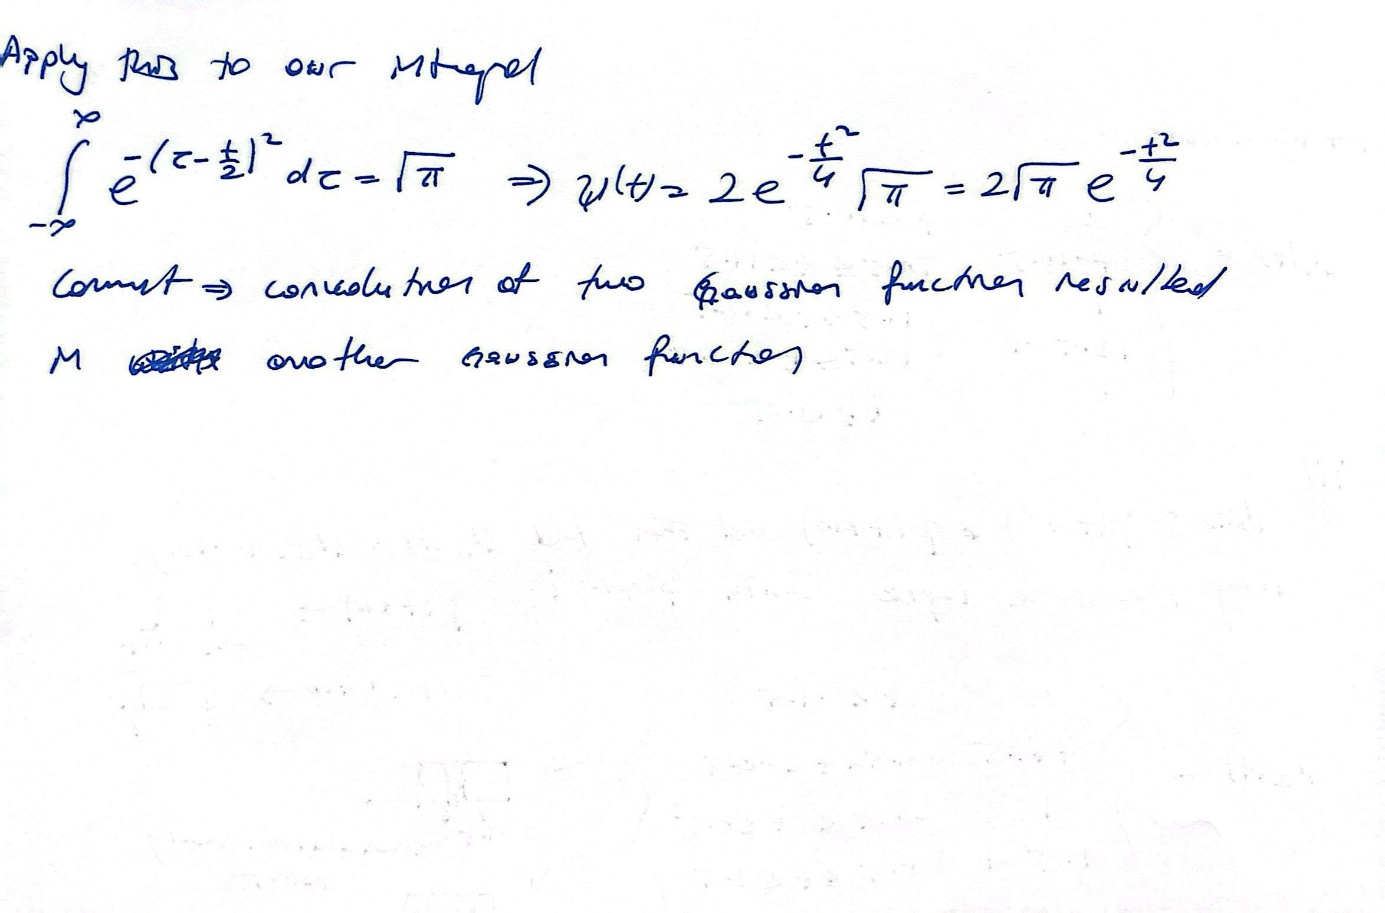 Apply this to our integral
∫_{-∞}^{∞} e^{-(τ-t/2)^2} dτ = √π ⇒ y(t) = 2e^{-t^2/4} √π = 2√π e^{-t^2/4}
Comment ⇒ convolution of two Gaussian function resulted
in another Gaussian function